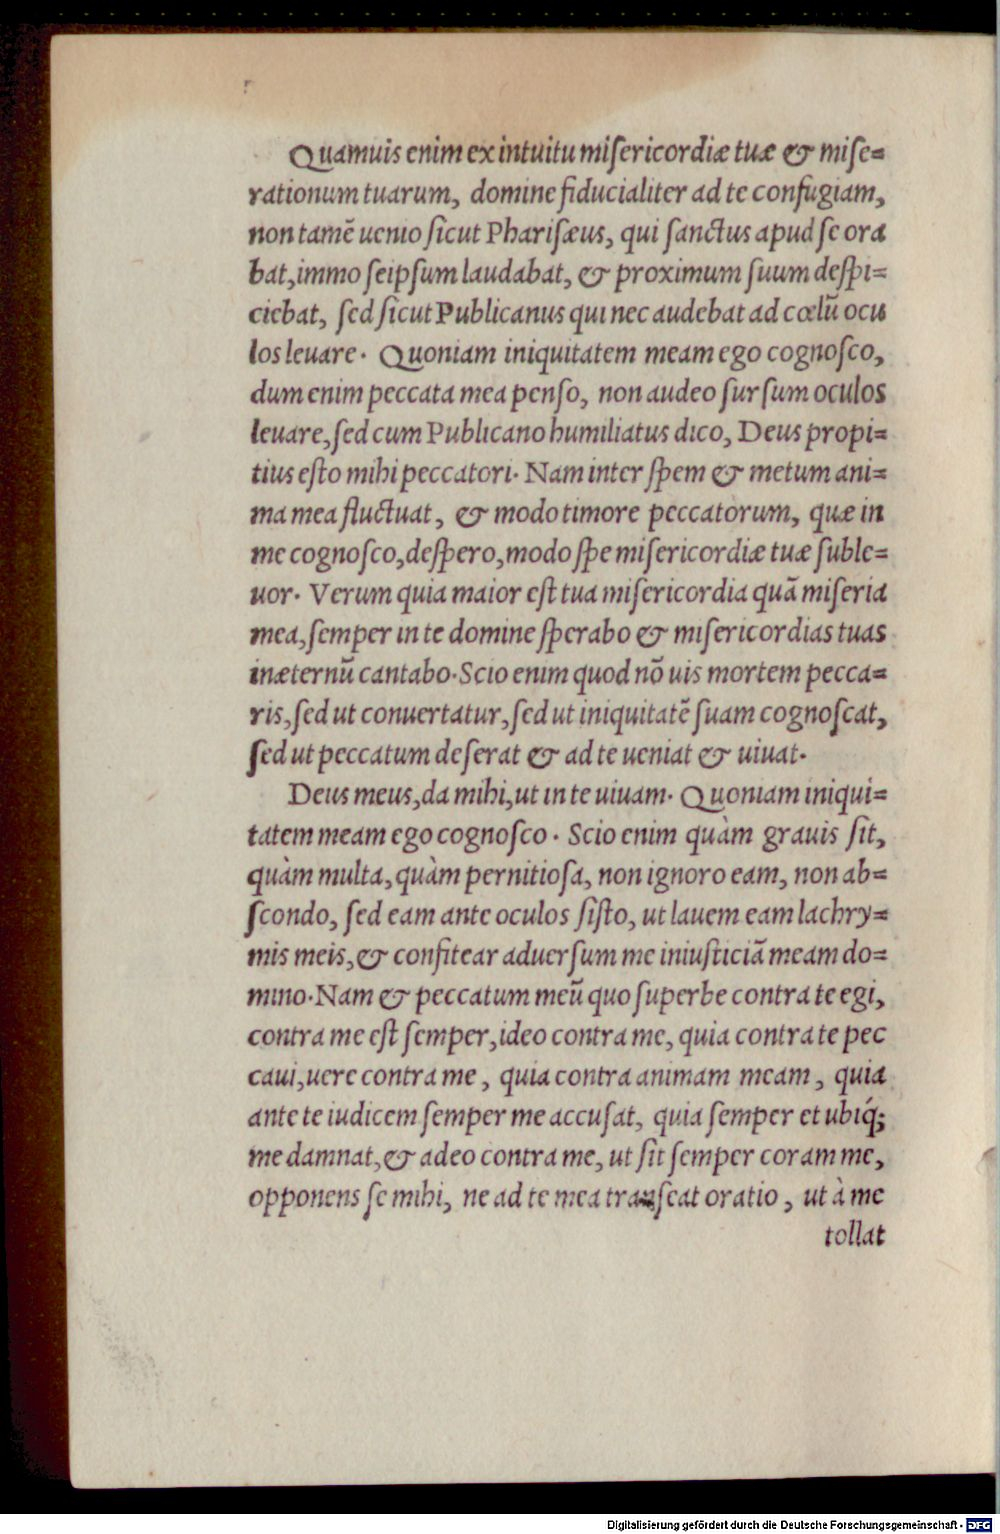 Quamuis enim ex intuitu miſericordiæ tuæ & miſe=
rationum tuarum, domine fiducialiter ad te confugiam,
non tamē uenio ſicut Phariſæus, qui ſanctus apud ſe ora
bat, immo ſeipſum laudabat, & proximum ſuum deſpi=
ciebat, ſed ſicut Publicanus qui nec audebat ad cœlū ocu
los leuare. Quoniam iniquitatem meam ego cognoſco,
dum enim peccata mea penſo, non audeo ſurſum oculos
leuare, ſed cum Publicano humiliatus dico, Deus propi=
tius eſto mihi peccatori. Nam inter ſpem & metum ani=
ma mea fluctuat, & modo timore peccatorum, quæ in
me cognoſco, deſpero, modo ſpe miſericordiæ tuæ ſuble=
uor. Verum quia maior eſt tua miſericordia quā miſeria
mea, ſemper in te domine ſperabo & miſericordias tuas
inæternū cantabo. Scio enim quod nō uis mortem pecca=
ris, ſed ut conuertatur, ſed ut iniquitatē ſuam cognoſcat,
ſed ut peccatum deſerat & ad te ueniat & uiuat.
Deus meus, da mihi, ut in te uiuam. Quoniam iniqui=
tatem meam ego cognoſco. Scio enim quàm grauis ſit,
quàm multa, quàm pernitioſa, non ignoro eam, non ab=
ſcondo, ſed eam ante oculos ſiſto, ut lauem eam lachry=
mis meis, & confitear aduerſum me iniuſticiā meam do=
mino. Nam & peccatum meū quo ſuperbe contra te egi,
contra me eſt ſemper, ideo contra me, quia contra te pec
caui, uere contra me, quia contra animam meam, quia
ante te iudicem ſemper me accuſat, quia ſemper et ubiq́;
me damnat, & adeo contra me, ut ſit ſemper coram me,
opponens ſe mihi, ne ad te mea tranſeat oratio, ut à me
tollat
Digitalisierung gefördert durch die Deutsche Forschungsgemeinschaft - DFG